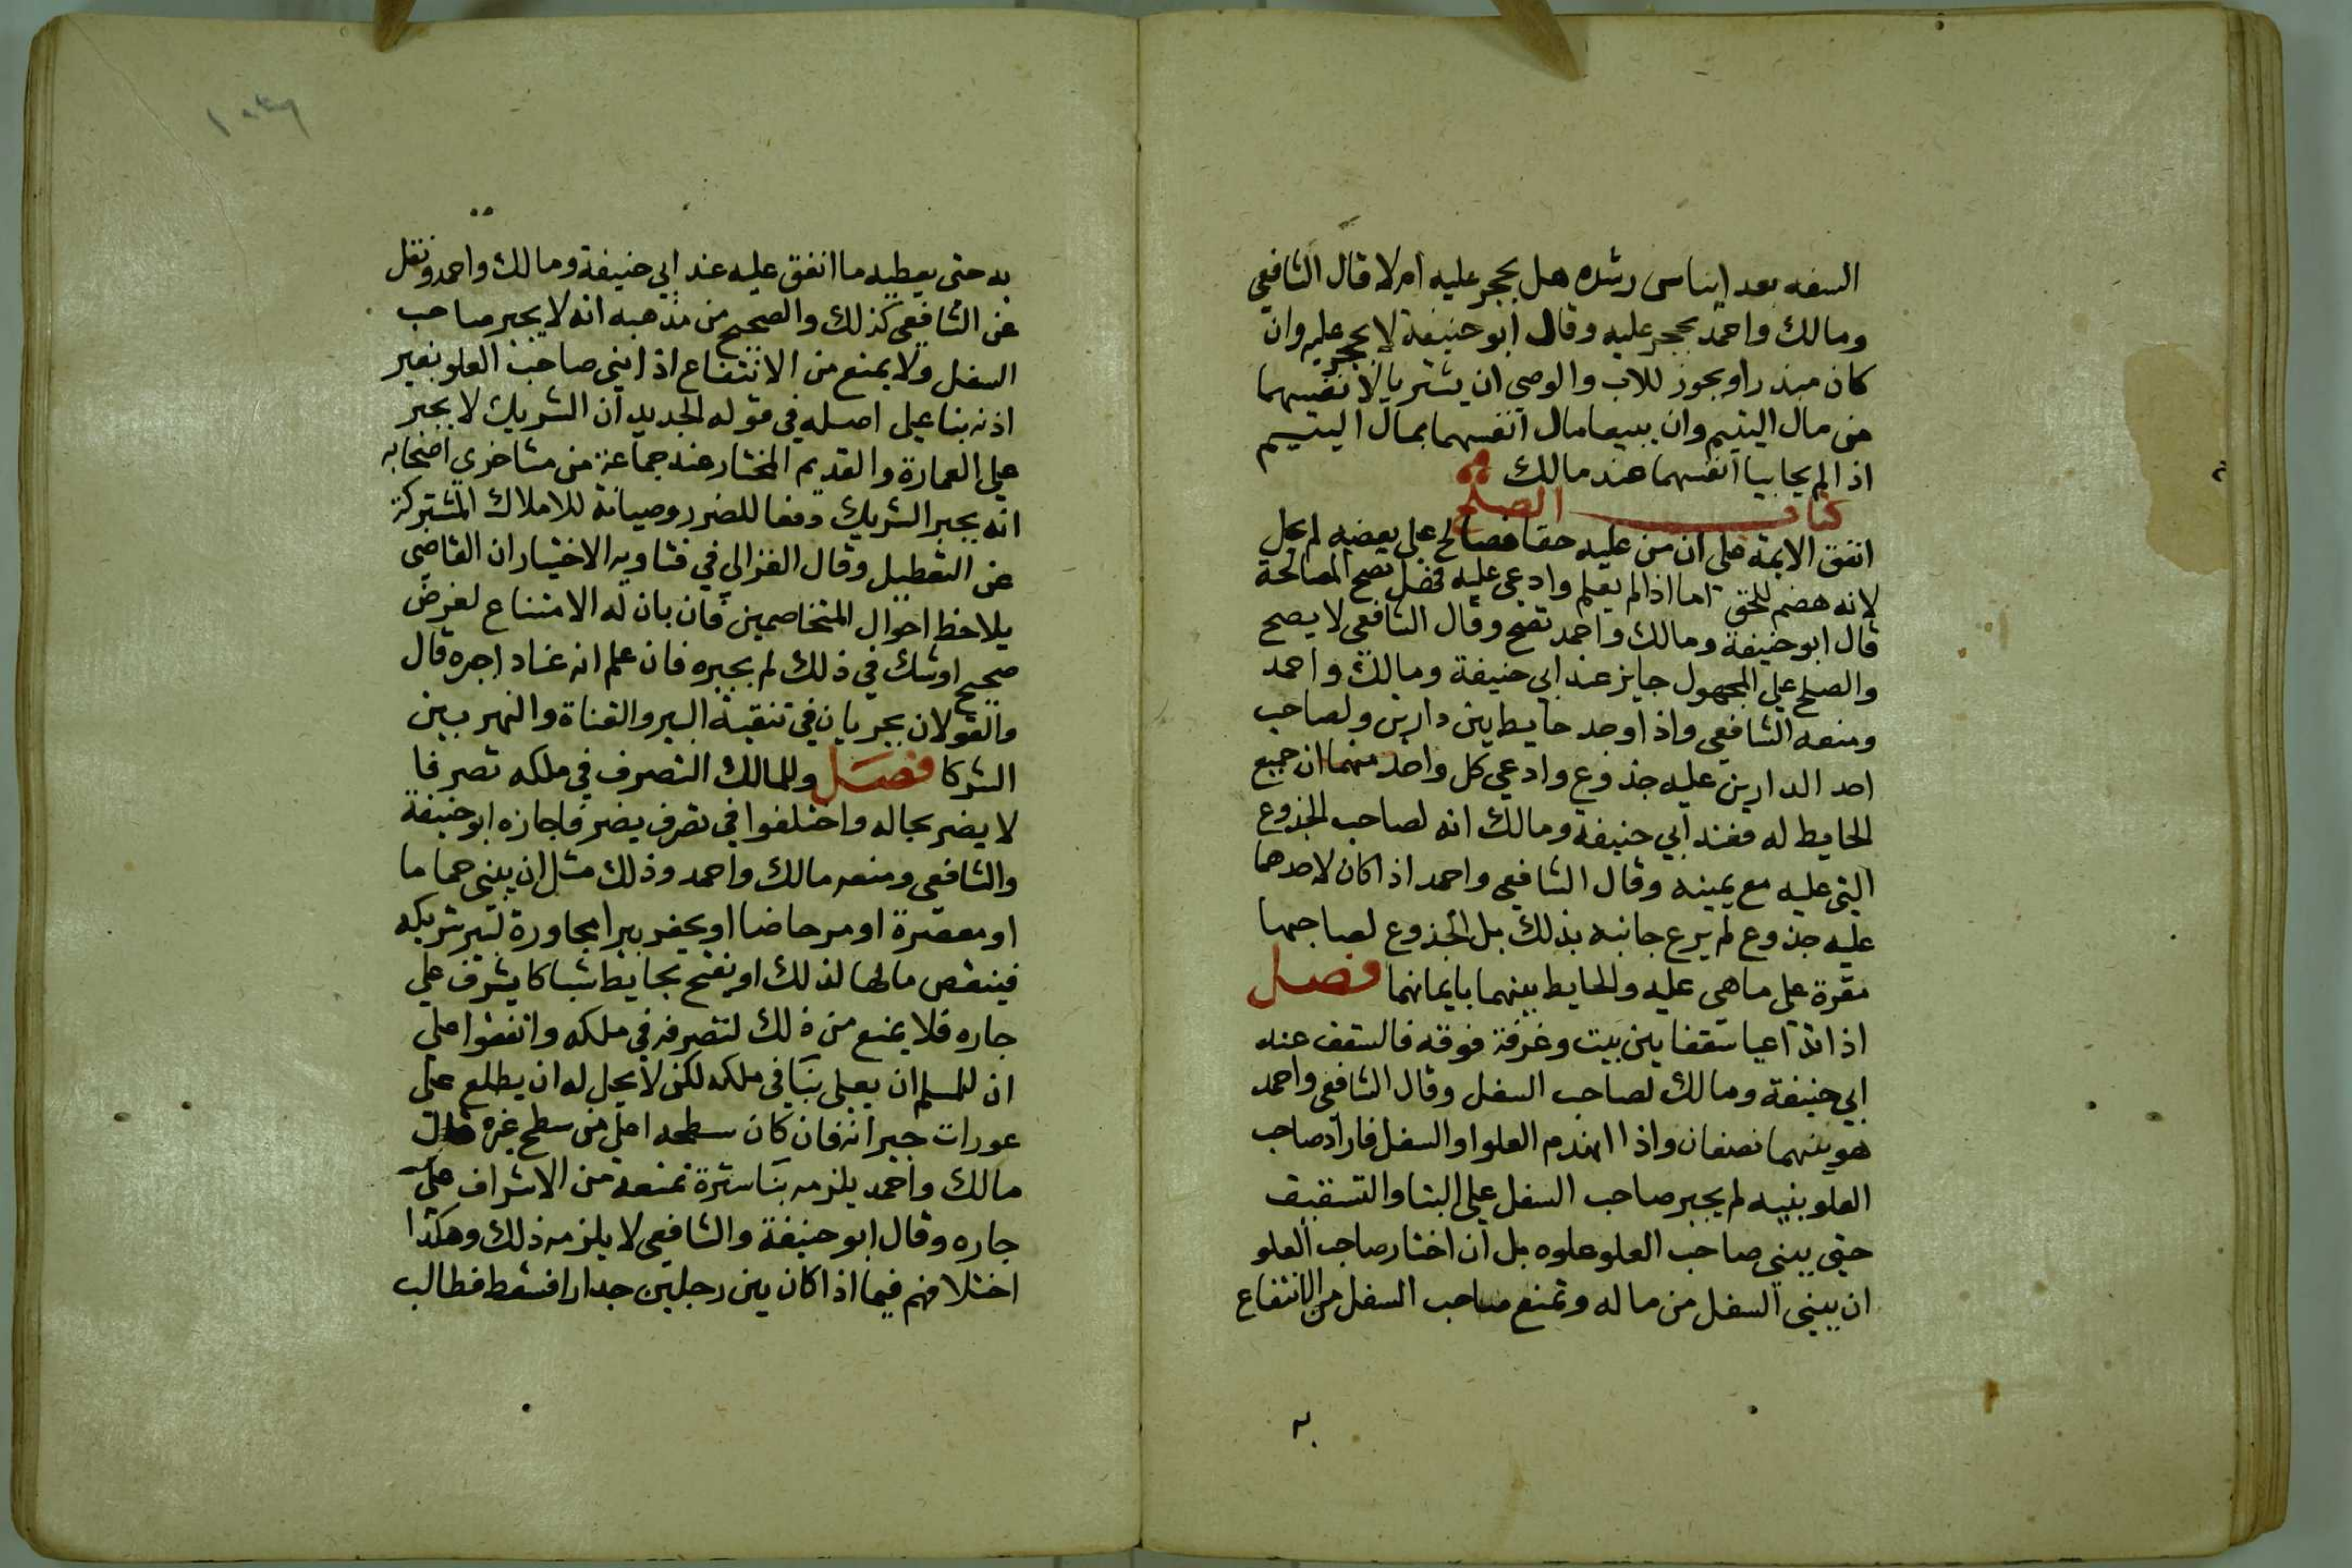 السفه بعد ايناس رشده هل يحجر عليه ام لا قال الشافعي
ومالك واحمد يحجر عليه وقال ابو حنيفة لا يحجر عليه وان
كان مبذرا ويجوز للاب والوصي ان يشتريا لانفسهما
من مال اليتيم وان يبيعا مال انفسهما بمال اليتيم
اذا لم يحابيا انفسهما عند مالك
كتاب الصلح
اتفق الايمة على ان من عليه حقا فصالح على بعضه لم يحل
لانه هضم للحق اما اذا لم يعلم وادعي عليه فهل تصح المصالحة
قال ابو حنيفة ومالك واحمد تصح وقال الشافعي لا يصح
والصلح على المجهول جايز عند ابي حنيفة ومالك واحمد
ومنعه الشافعي واذا وجد حايط بين دارين ولصاحب
احد الدارين عليه جذوع وادعي كل واحد منهما ان جميع
الحايط له فعند ابي حنيفة ومالك انه لصاحب الجذوع
التي عليه مع يمينه وقال الشافعي واحمد اذا كان لاحدهما
عليه جذوع لم يرع جانبه بذلك بل الجذوع لصاحبها
مقرة على ما هي عليه والحايط بينهما بايمانهما فصل
اذا تداعيا سقفا بين بيت وغرفة فوقه فالسقف عند
ابي حنيفة ومالك لصاحب السفل وقال الشافعي واحمد
هو بينهما نصفان واذا انهدم العلو او السفل فاراد صاحب
العلو بنيه لم يجبر صاحب السفل على البنا والتسقيف
حتى يبني صاحب العلو علوه بل ان اختار صاحب العلو
ان يبني السفل من ماله وتمنع صاحب السفل من الانتفاع
به
به حتى يعطيه ما انفق عليه عند ابي حنيفة ومالك واحمد ونقل
عن الشافعي كذلك والصحيح من مذهبه انه لا يجبر صاحب
السفل ولا يمنع من الانتفاع اذا بني صاحب العلو بغير
اذنه بنا على اصله في قوله الجديد ان الشريك لا يجبر
على العمارة والقديم المختار عند جماعة من متاخري اصحابه
انه يجبر الشريك دفعا للضرر وصيانة للاملاك المشتركة
عن التعطيل وقال الغزالي في فتاويه الاختيار ان القاضي
يلاحظ احوال المتخاصمين فان بان له الامتناع لغرض
صحيح او شك في ذلك لم يجبره فان علم انه عناد اجبره قال
والقولان يجريان في تنقية البير والقناة والنهر بين
الشركا فصل وللمالك التصرف في ملكه تصرفا
لا يضر بجاره واختلفوا في تصرف يضر فاجازه ابو حنيفة
والشافعي ومنعه مالك واحمد وذلك مثل ان يبني حماما
او معصرة او مرحاضا او يحفر بيرا مجاورة لبير شريكه
فينقص مالها لذلك او يفتح بحايط شباكا يشرف على
جاره فلا يمنع من ذلك لتصرفه في ملكه واتفقوا على
ان للمسلم ان يعلي بنا في ملكه لكن لا يحل له ان يطلع على
عورات جيرانه فان كان سطحه اعلى من سطح غيره قال
مالك واحمد يلزمه بنا سترة تمنعه من الاشراف على
جاره وقال ابو حنيفة والشافعي لا يلزمه ذلك وهكذا
اختلافهم فيما اذا كان بين رجلين جدار فسقط فطالب